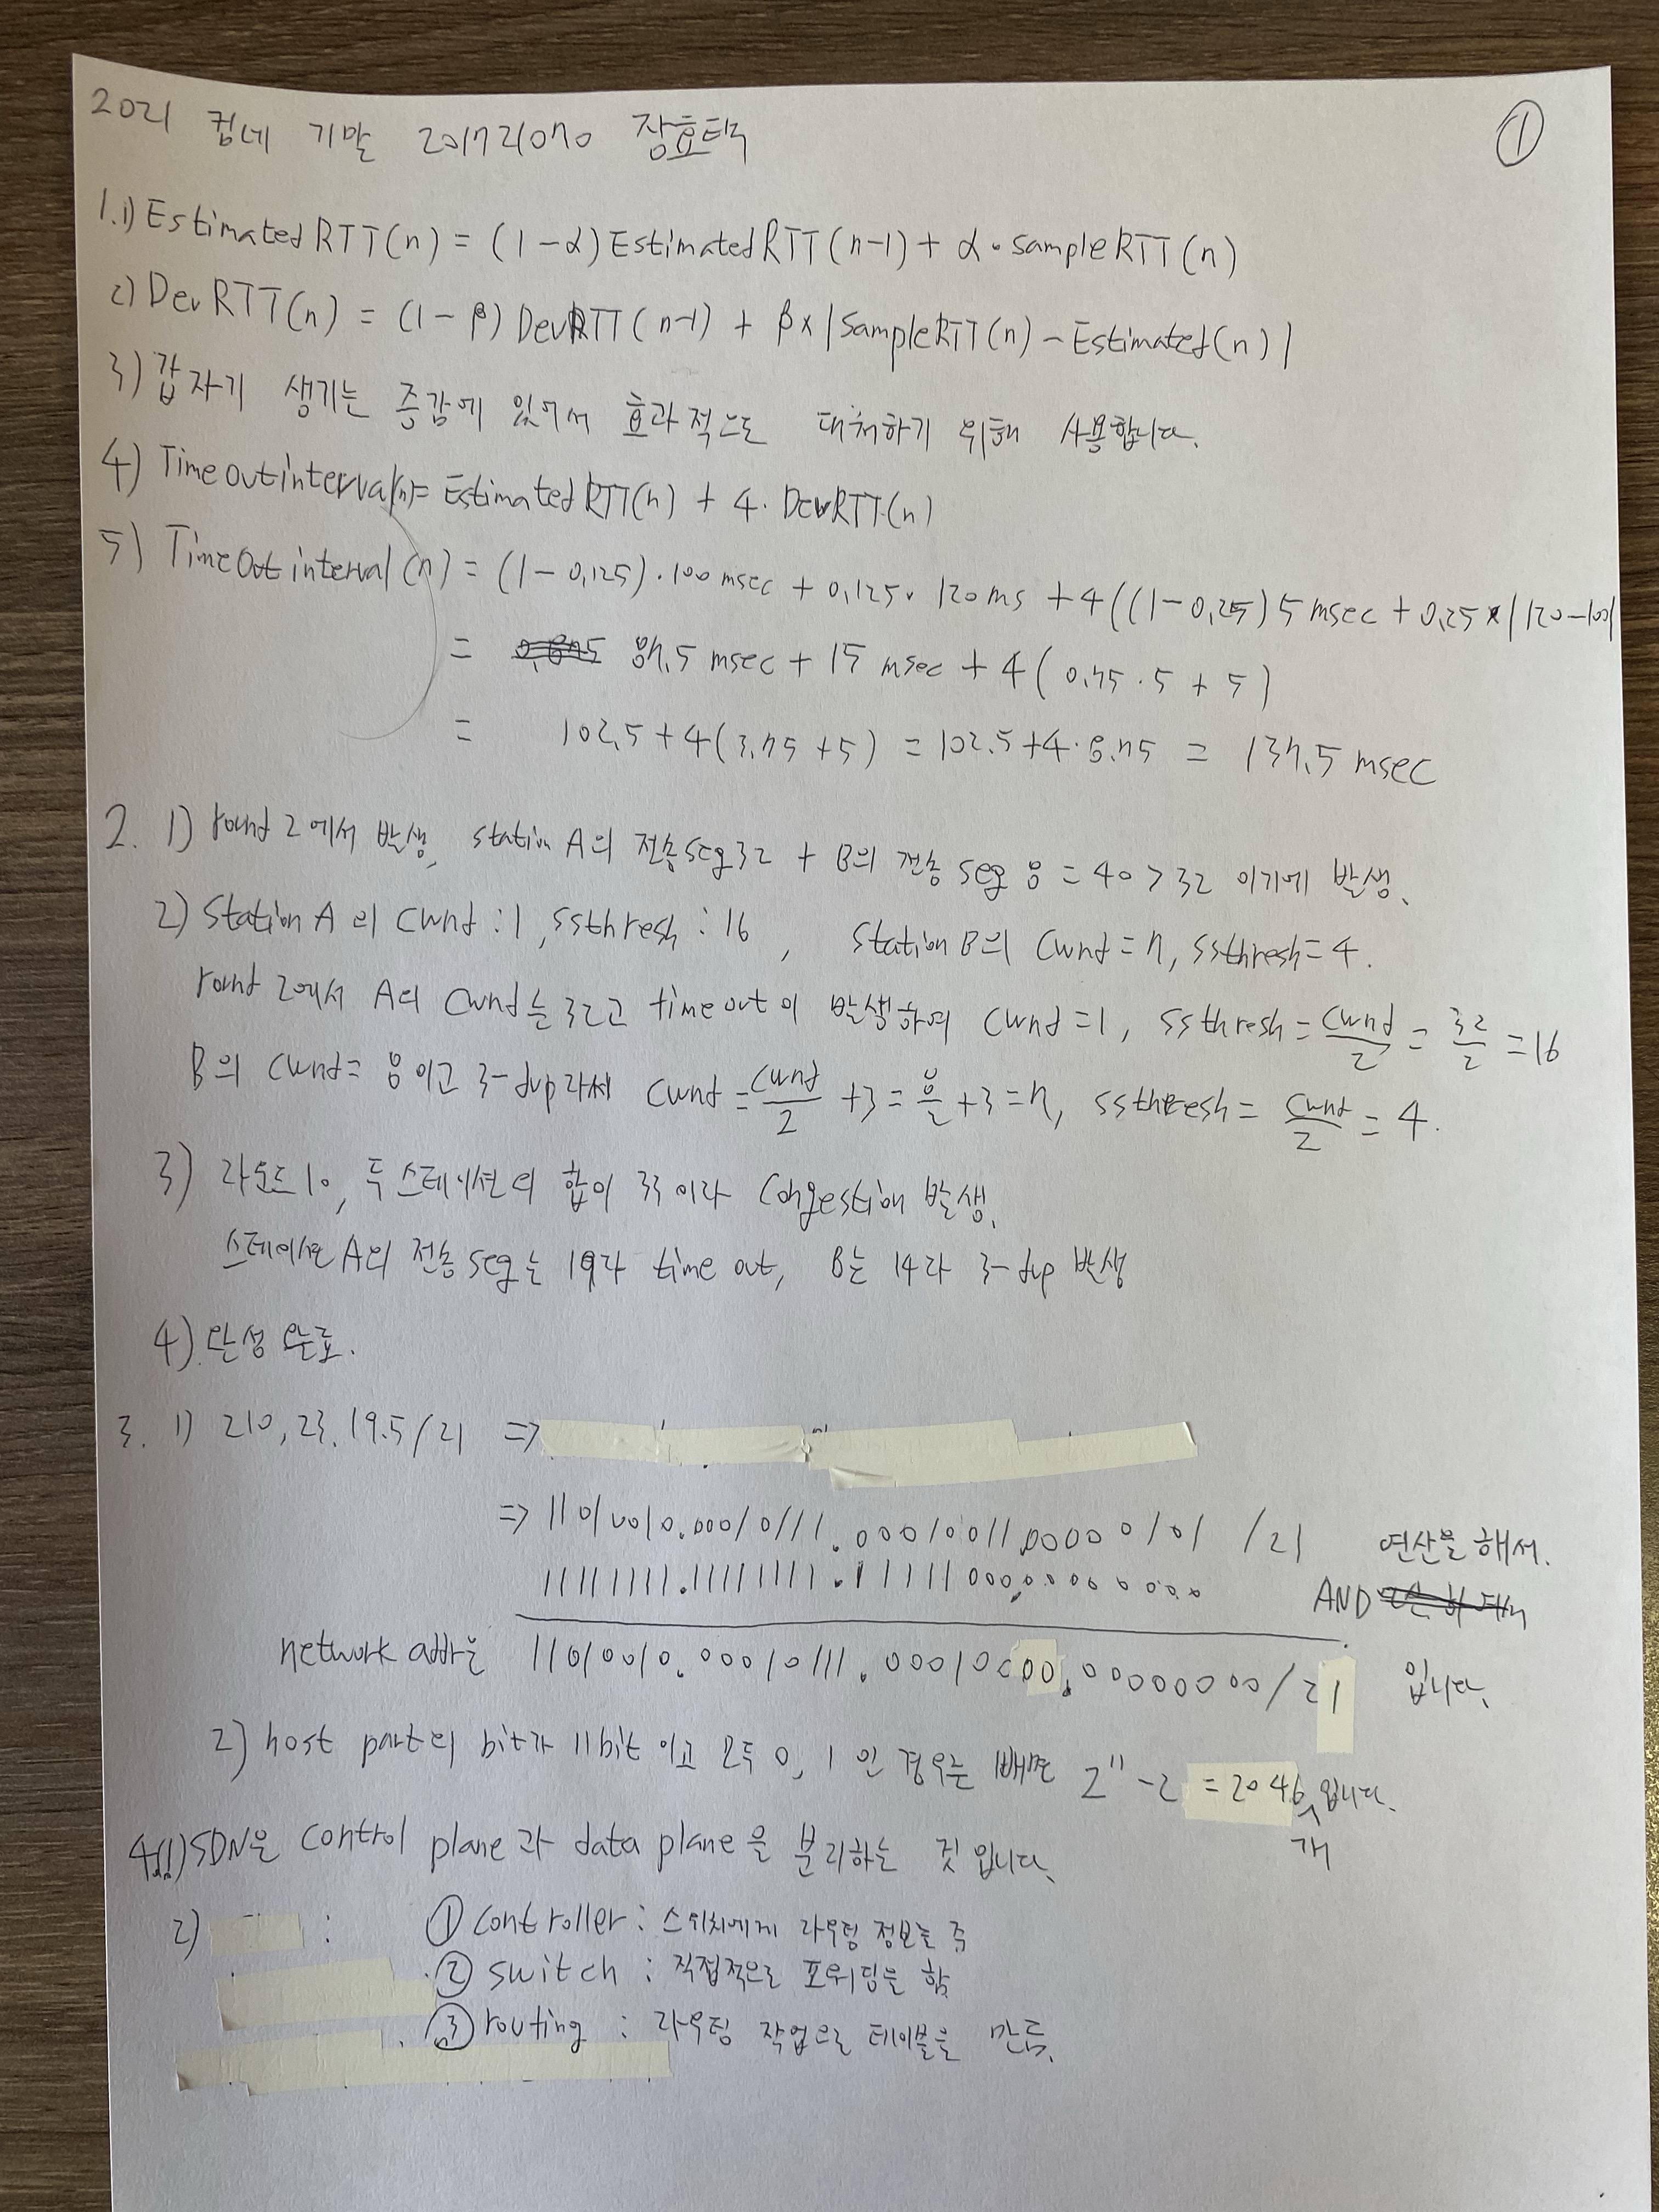 2021 컴네 기말 201721070 장효택 ①
1.1) EstimatedRTT(n) = (1-α)EstimatedRTT(n-1) + α·sampleRTT(n)
2) DevRTT(n) = (1-β) DevRTT(n-1) + β×|SampleRTT(n) - Estimated(n)|
3) 갑자기 생기는 증감에 있어서 효과적으로 대처하기 위해 사용합니다.
4) Timeoutinterval(n)= EstimatedRTT(n) + 4·DevRTT(n)
5) TimeOutinterval(n) = (1-0.125)·100msec + 0.125·120ms + 4((1-0.25)5msec + 0.25×|120-100|
= 87.5 msec + 15 msec + 4(0.75·5 + 5)
= 102.5 + 4(3.75 + 5) = 102.5 + 4·8.75 = 137.5 msec
2. 1) round 2에서 발생, station A의 전송seg32 + B의 전송 seg 8 = 40 > 32 이기에 발생.
2) Station A의 cwnd : 1, ssthresh : 16, station B의 cwnd = 7, ssthresh = 4.
round 2에서 A의 cwnd는 32고 time out이 발생하여 cwnd = 1, ssthresh = cwnd/2 = 32/2 = 16
B의 cwnd = 8이고 3-dup라써 cwnd = cwnd/2 + 3 = 8/2 + 3 = 7, ssthresh = cwnd/2 = 4.
3) 라운드 10, 두 스테이션의 합이 33이라 congestion 발생.
스테이션A의 전송seg는 19라 time out, B는 14라 3-dup 발생
4) 완성 완료.
3. 1) 210.23.19.5/21 =>
=> 11010010.00010111.00010011.00000101 /21 연산을 해서.
11111111.11111111.11111000.00000000 AND
network addr는 11010010.00010111.00010000.00000000/21 입니다.
2) host part의 bit가 11bit 이고 모두 0, 1 인 경우는 빼면 2^11 - 2 = 2046개 입니다.
4.1) SDN은 control plane과 data plane을 분리하는 것 입니다.
2) : ① controller : 스위치에게 라우팅 정보를 줌
② switch : 직접적으로 포워딩을 함
③ routing : 라우팅 작업으로 테이블을 만듬.